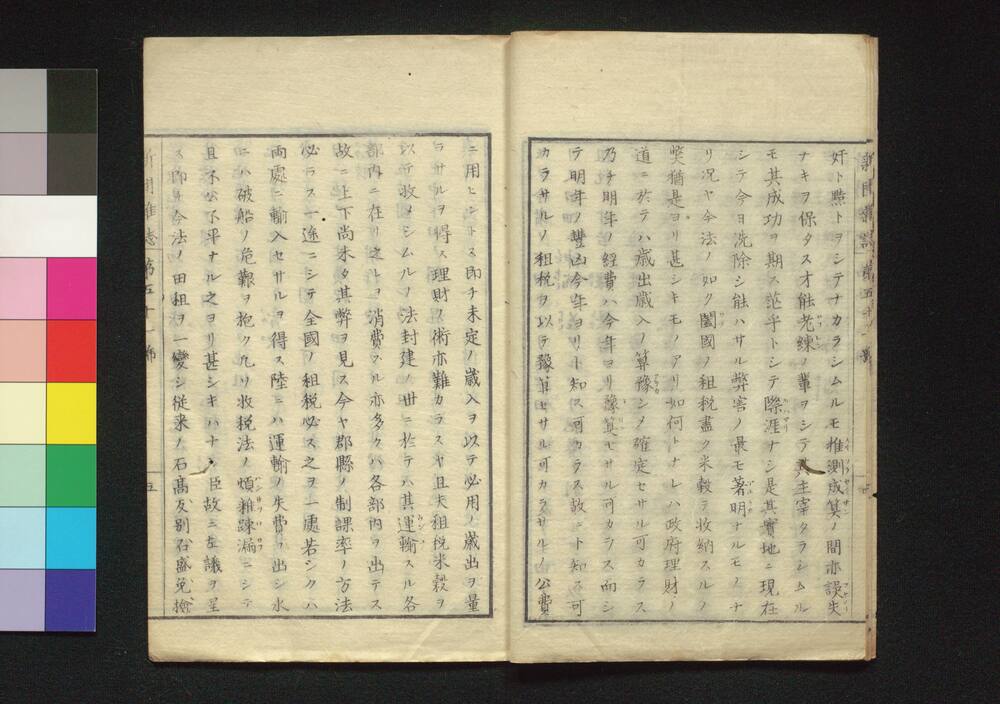 奸ト黠トヲシテナカラシムルモ推測成算ノ間亦誤失
ナキヲ保タス才能老練ノ輩ヲシテ其主宰タラシムル
モ其成功ヲ期ス茫乎トシテ際涯ナシ是其實地ニ現在
シテ今日洗除シ能ハサル弊害ノ最モ著明ナルモノナ
リ况ヤ今法ノ如ク闔國ノ租税盡ク米穀テ收納スルノ
獘猶是ヨリ甚シキモノアリ如何トナレハ政府理財ノ
道ニ於テハ歳出歳入ノ算豫シメ確定セサル可カラス
乃チ明年ノ經費ハ今年ヨリ豫算セサル可カラス而シ
テ明年ノ豐凶今年ヨリト知ス可カラス故ニト知ス可
カラサルノ租税ヲ以テ豫算セサル可カラサルノ公費
ニ用ヒントス即チ未定ノ歳入ヲ以テ必用ノ歳出ヲ量
ラサルヲ得ス理財ノ術亦難カラスヤ且夫租税米穀ヲ
以テ收メシムルノ法封建ノ世ニ於テハ其運輸スル各
部内ニ在リ之レヲ消費スル亦多クハ各部内ヲ出テス
故ニ上下尚未タ其弊ヲ見ス今ヤ郡縣ノ制課率ノ方法
必ラス一途ニシテ全國ノ租税必ス之ヲ一處若シクハ
両處ニ輸入セサルヲ得ス陸ニハ運輸ノ失費ヲ出シ水
ニハ破船ノ危難ヲ抱ク凡リ收税法ノ煩雜踈漏ニシテ
且不公不平ナル之ヨリ甚シキハナシ臣故ニ左議ヲ呈
ス即チ今法ノ田租ヲ一變シ従来ノ石髙反別石盛免檢
新聞雜誌 第五十一號
五